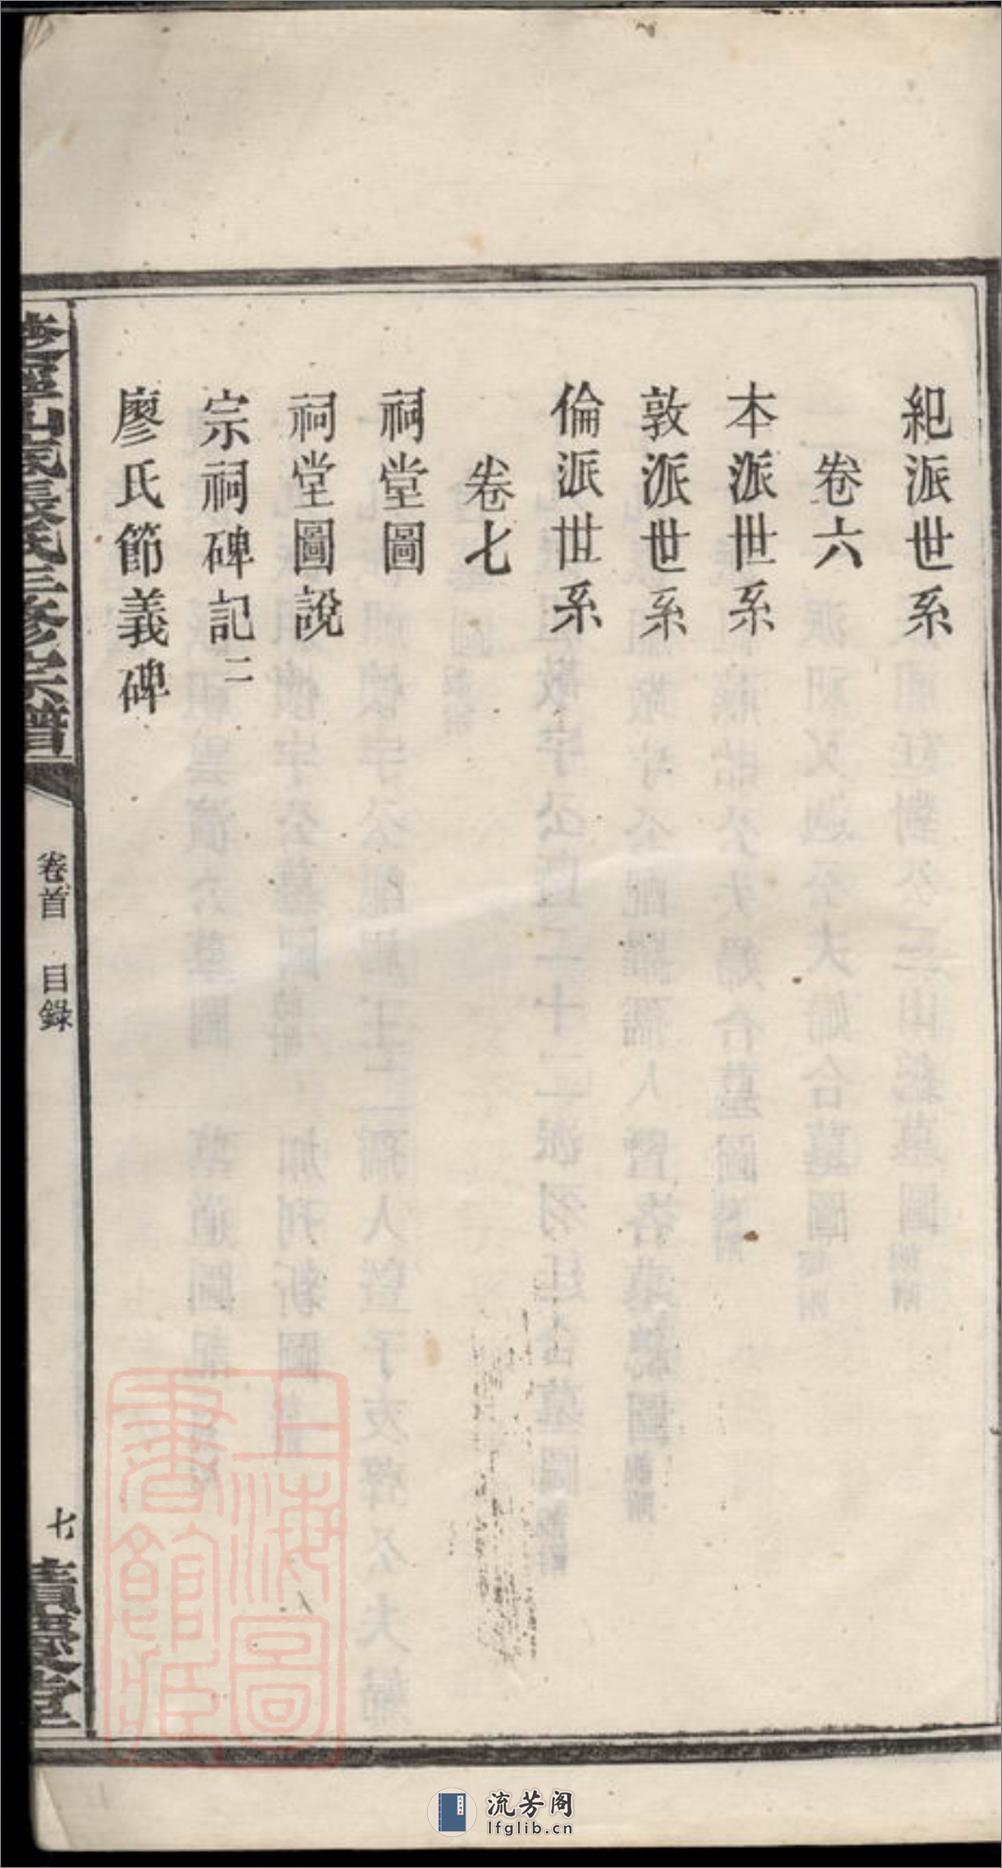 紀派世系
卷六
本派世系
敦派世系
倫派世系
卷七
祠堂圖
祠堂圖說
宗祠碑記二
廖氏節義碑
張氏三修宗譜
卷首 目錄
七
堂
上海圖書館藏
流芳阁
lfglib.cn